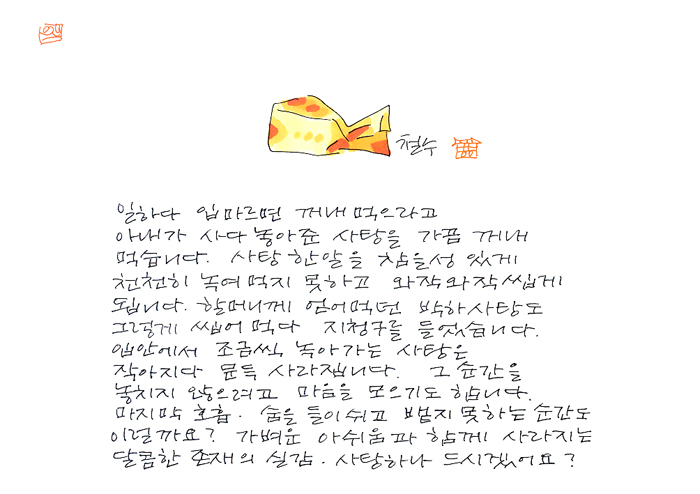 철수
일하다 입 마르면 꺼내 먹으라고
아내가 사다 놓아준 사탕을 가끔 꺼내
먹습니다. 사탕 한알을 참을성 있게
천천히 녹여 먹지 못하고 와작와작 씹게
됩니다. 할머니께 얻어먹던 박하사탕도
그렇게 씹어 먹다 지청구를 들었습니다.
입안에서 조금씩 녹아가는 사탕은
작아지다 문득 사라집니다. 그 순간을
놓치지 않으려고 마음을 모으기도 합니다.
마지막 호흡. 숨을 들이쉬고 뱉지 못하는 순간도
이럴까요? 가벼운 아쉬움과 함께 사라지는
달콤한 존재의 실감. 사탕하나 드시겠어요?